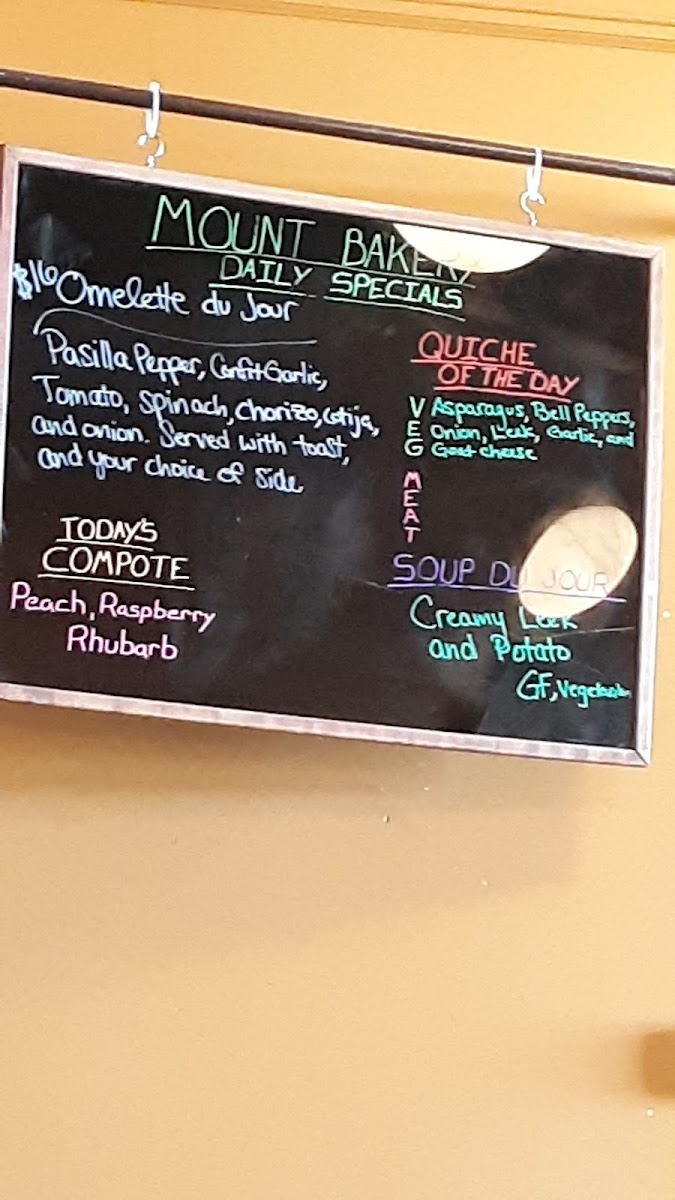 MOUNT BAKERY
DAILY SPECIALS
$16 Omelette du Jour
Pasilla Pepper, Confit Garlic,
Tomato, spinach, chorizo, cotija,
and onion. Served with toast,
and your choice of side
TODAY'S
COMPOTE
Peach, Raspberry
Rhubarb
QUICHE
OF THE DAY
VEG
Asparagus, Bell Peppers,
Onion, Leek, Garlic, and
Goat cheese
MEAT
SOUP DU JOUR
Creamy Leek
and Potato
GF, Vegetarian